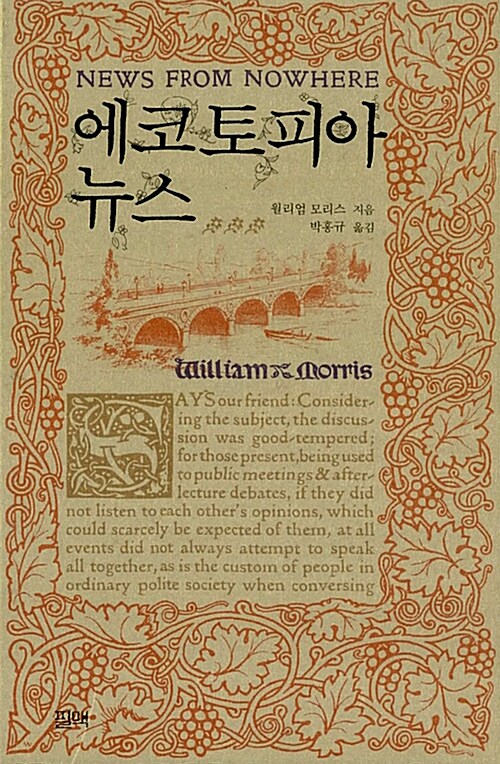 NEWS FROM NOWHERE
에코토피아
뉴스
윌리엄 모리스 지음
박홍규 옮김
William Morris
SAYS our friend: Consider-
ing the subject, the discus-
sion was good-tempered;
for those present, being used
to public meetings & after-
lecture debates, if they did
not listen to each other's opinions, which
could scarcely be expected of them, at all
events did not always attempt to speak
all together, as is the custom of people in
ordinary polite society when conversing
필맥